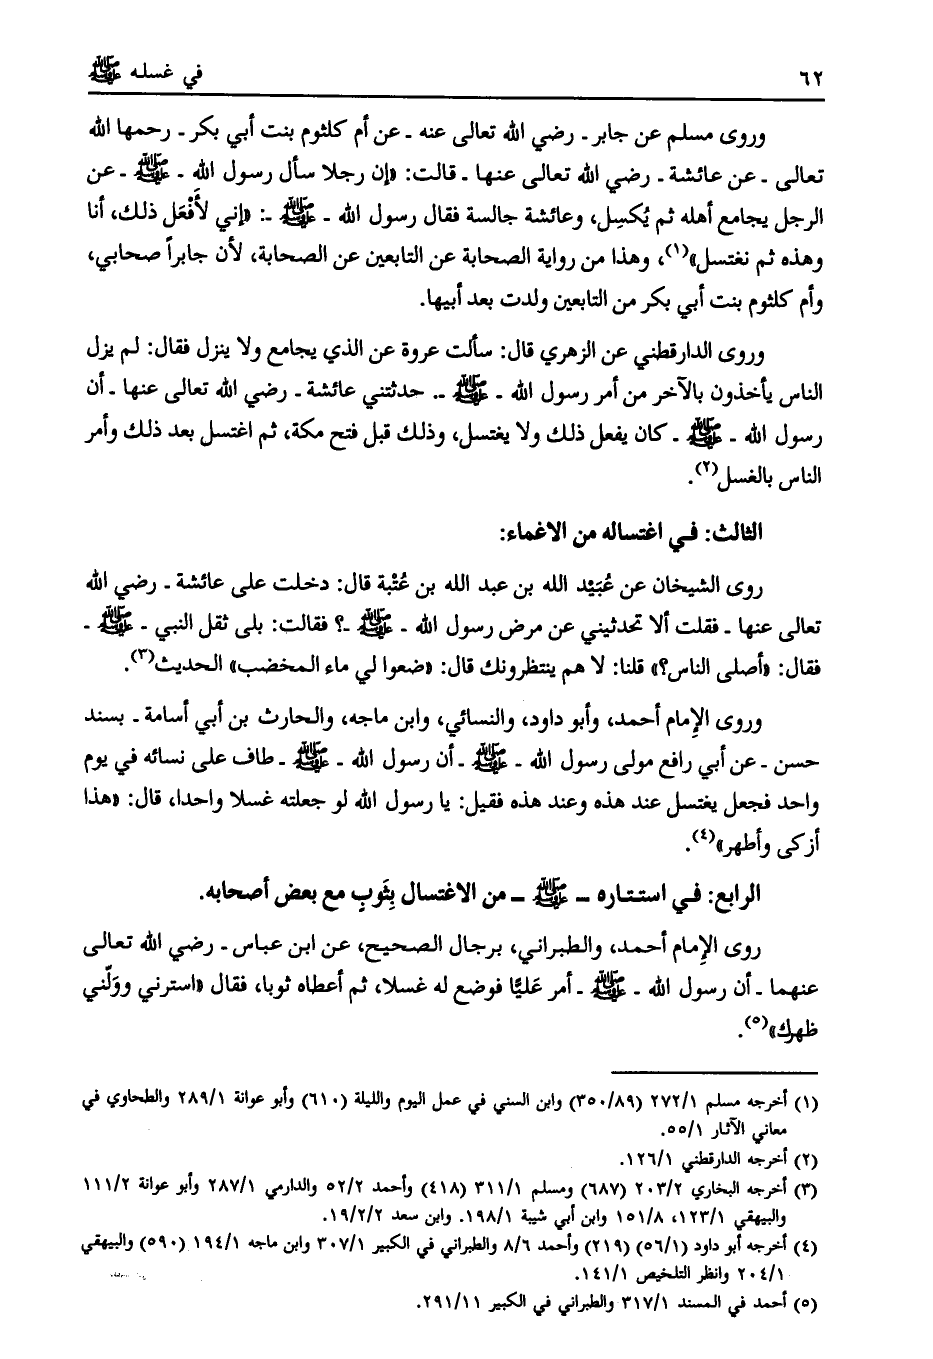 ٦٢ في غسله ﷺ
وروى مسلم عن جابر ـ رضي الله تعالى عنه ـ عن أم كلثوم بنت أبي بكر ـ رحمها الله
تعالى ـ عن عائشة ـ رضي الله تعالى عنها ـ قالت: «إن رجلا سأل رسول الله ـ ﷺ ـ عن
الرجل يجامع أهله ثم يُكسِل، وعائشة جالسة فقال رسول الله ـ ﷺ ـ: «إني لأَفْعَل ذلك، أنا
وهذه ثم نغتسل»(١)، وهذا من رواية الصحابة عن التابعين عن الصحابة، لأن جابراً صحابي،
وأم كلثوم بنت أبي بكر من التابعين ولدت بعد أبيها.
وروى الدارقطني عن الزهري قال: سألت عروة عن الذي يجامع ولا ينزل فقال: لم يزل
الناس يأخذون بالآخر من أمر رسول الله ـ ﷺ ـ. حدثتني عائشة ـ رضي الله تعالى عنها ـ أن
رسول الله ـ ﷺ ـ كان يفعل ذلك ولا يغتسل، وذلك قبل فتح مكة، ثم اغتسل بعد ذلك وأمر
الناس بالغسل(٢).
الثالث: في اغتساله من الاغماء:
روى الشيخان عن عُبَيْد الله بن عبد الله بن عُتْبة قال: دخلت على عائشة ـ رضي الله
تعالى عنها ـ فقلت ألا تحدثيني عن مرض رسول الله ـ ﷺ ـ؟ فقالت: بلى ثقل النبي ـ ﷺ ـ
فقال: «أصلى الناس؟» قلنا: لا هم ينتظرونك قال: «ضعوا لي ماء المخضب» الحديث(٣).
وروى الإِمام أحمد، وأبو داود، والنسائي، وابن ماجه، والحارث بن أبي أسامة ـ بسند
حسن ـ عن أبي رافع مولى رسول الله ـ ﷺ ـ أن رسول الله ـ ﷺ ـ طاف على نسائه في يوم
واحد فجعل يغتسل عند هذه وعند هذه فقيل: يا رسول الله لو جعلته غسلا واحدا، قال: «هذا
أزكى وأطهر»(٤).
الرابع: في استتاره ـ ﷺ ـ من الاغتسال بِثَوبٍ مع بعض أصحابه.
روى الإِمام أحمد، والطبراني، برجال الصحيح، عن ابن عباس ـ رضي الله تعالى
عنهما ـ أن رسول الله ـ ﷺ ـ أمر عَليًّا فوضع له غسلا، ثم أعطاه ثوبا، فقال «استرني وولّني
ظهرك»(٥).
(١) أخرجه مسلم ٢٧٢/١ (٣٥٠/٨٩) وابن السني في عمل اليوم والليلة (٦١٠) وأبو عوانة ٢٨٩/١ والطحاوي في
معاني الآثار ٥٥/١.
(٢) أخرجه الدارقطني ١٢٦/١.
(٣) أخرجه البخاري ٢٠٣/٢ (٦٨٧) ومسلم ٣١١/١ (٤١٨) وأحمد ٥٢/٢ والدارمي ٢٨٧/١ وأبو عوانة ١١١/٢
والبيهقي ١٢٣/١، ١٥١/٨ وابن أبي شيبة ١٩٨/١. وابن سعد ١٩/٢/٢.
(٤) أخرجه أبو داود (٥٦/١) (٢١٩) وأحمد ٨/٦ والطبراني في الكبير ٣٠٧/١ وابن ماجه ١٩٤/١ (٥٩٠) والبيهقي
٢٠٤/١ وانظر التلخيص ١٤١/١.
(٥) أحمد في المسند ٣١٧/١ والطبراني في الكبير ٢٩١/١١.